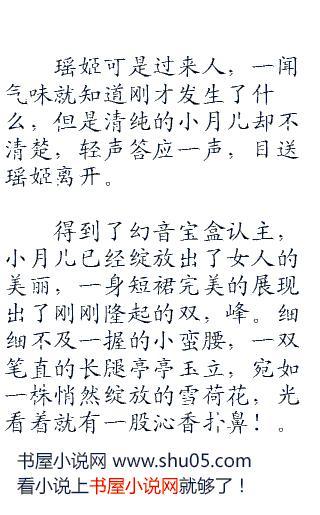 瑶姬可是过来人，一闻
气味就知道刚才发生了什
么，但是清纯的小月儿却不
清楚，轻声答应一声，目送
瑶姬离开。
得到了幻音宝盒认主，
小月儿已经绽放出了女人的
美丽，一身短裙完美的展现
出了刚刚隆起的双，峰。细
细不及一握的小蛮腰，一双
笔直的长腿亭亭玉立，宛如
一株悄然绽放的雪荷花，光
看着就有一股沁香扑鼻！。
书屋小说网 www.shu05.com
看小说上书屋小说网就够了！